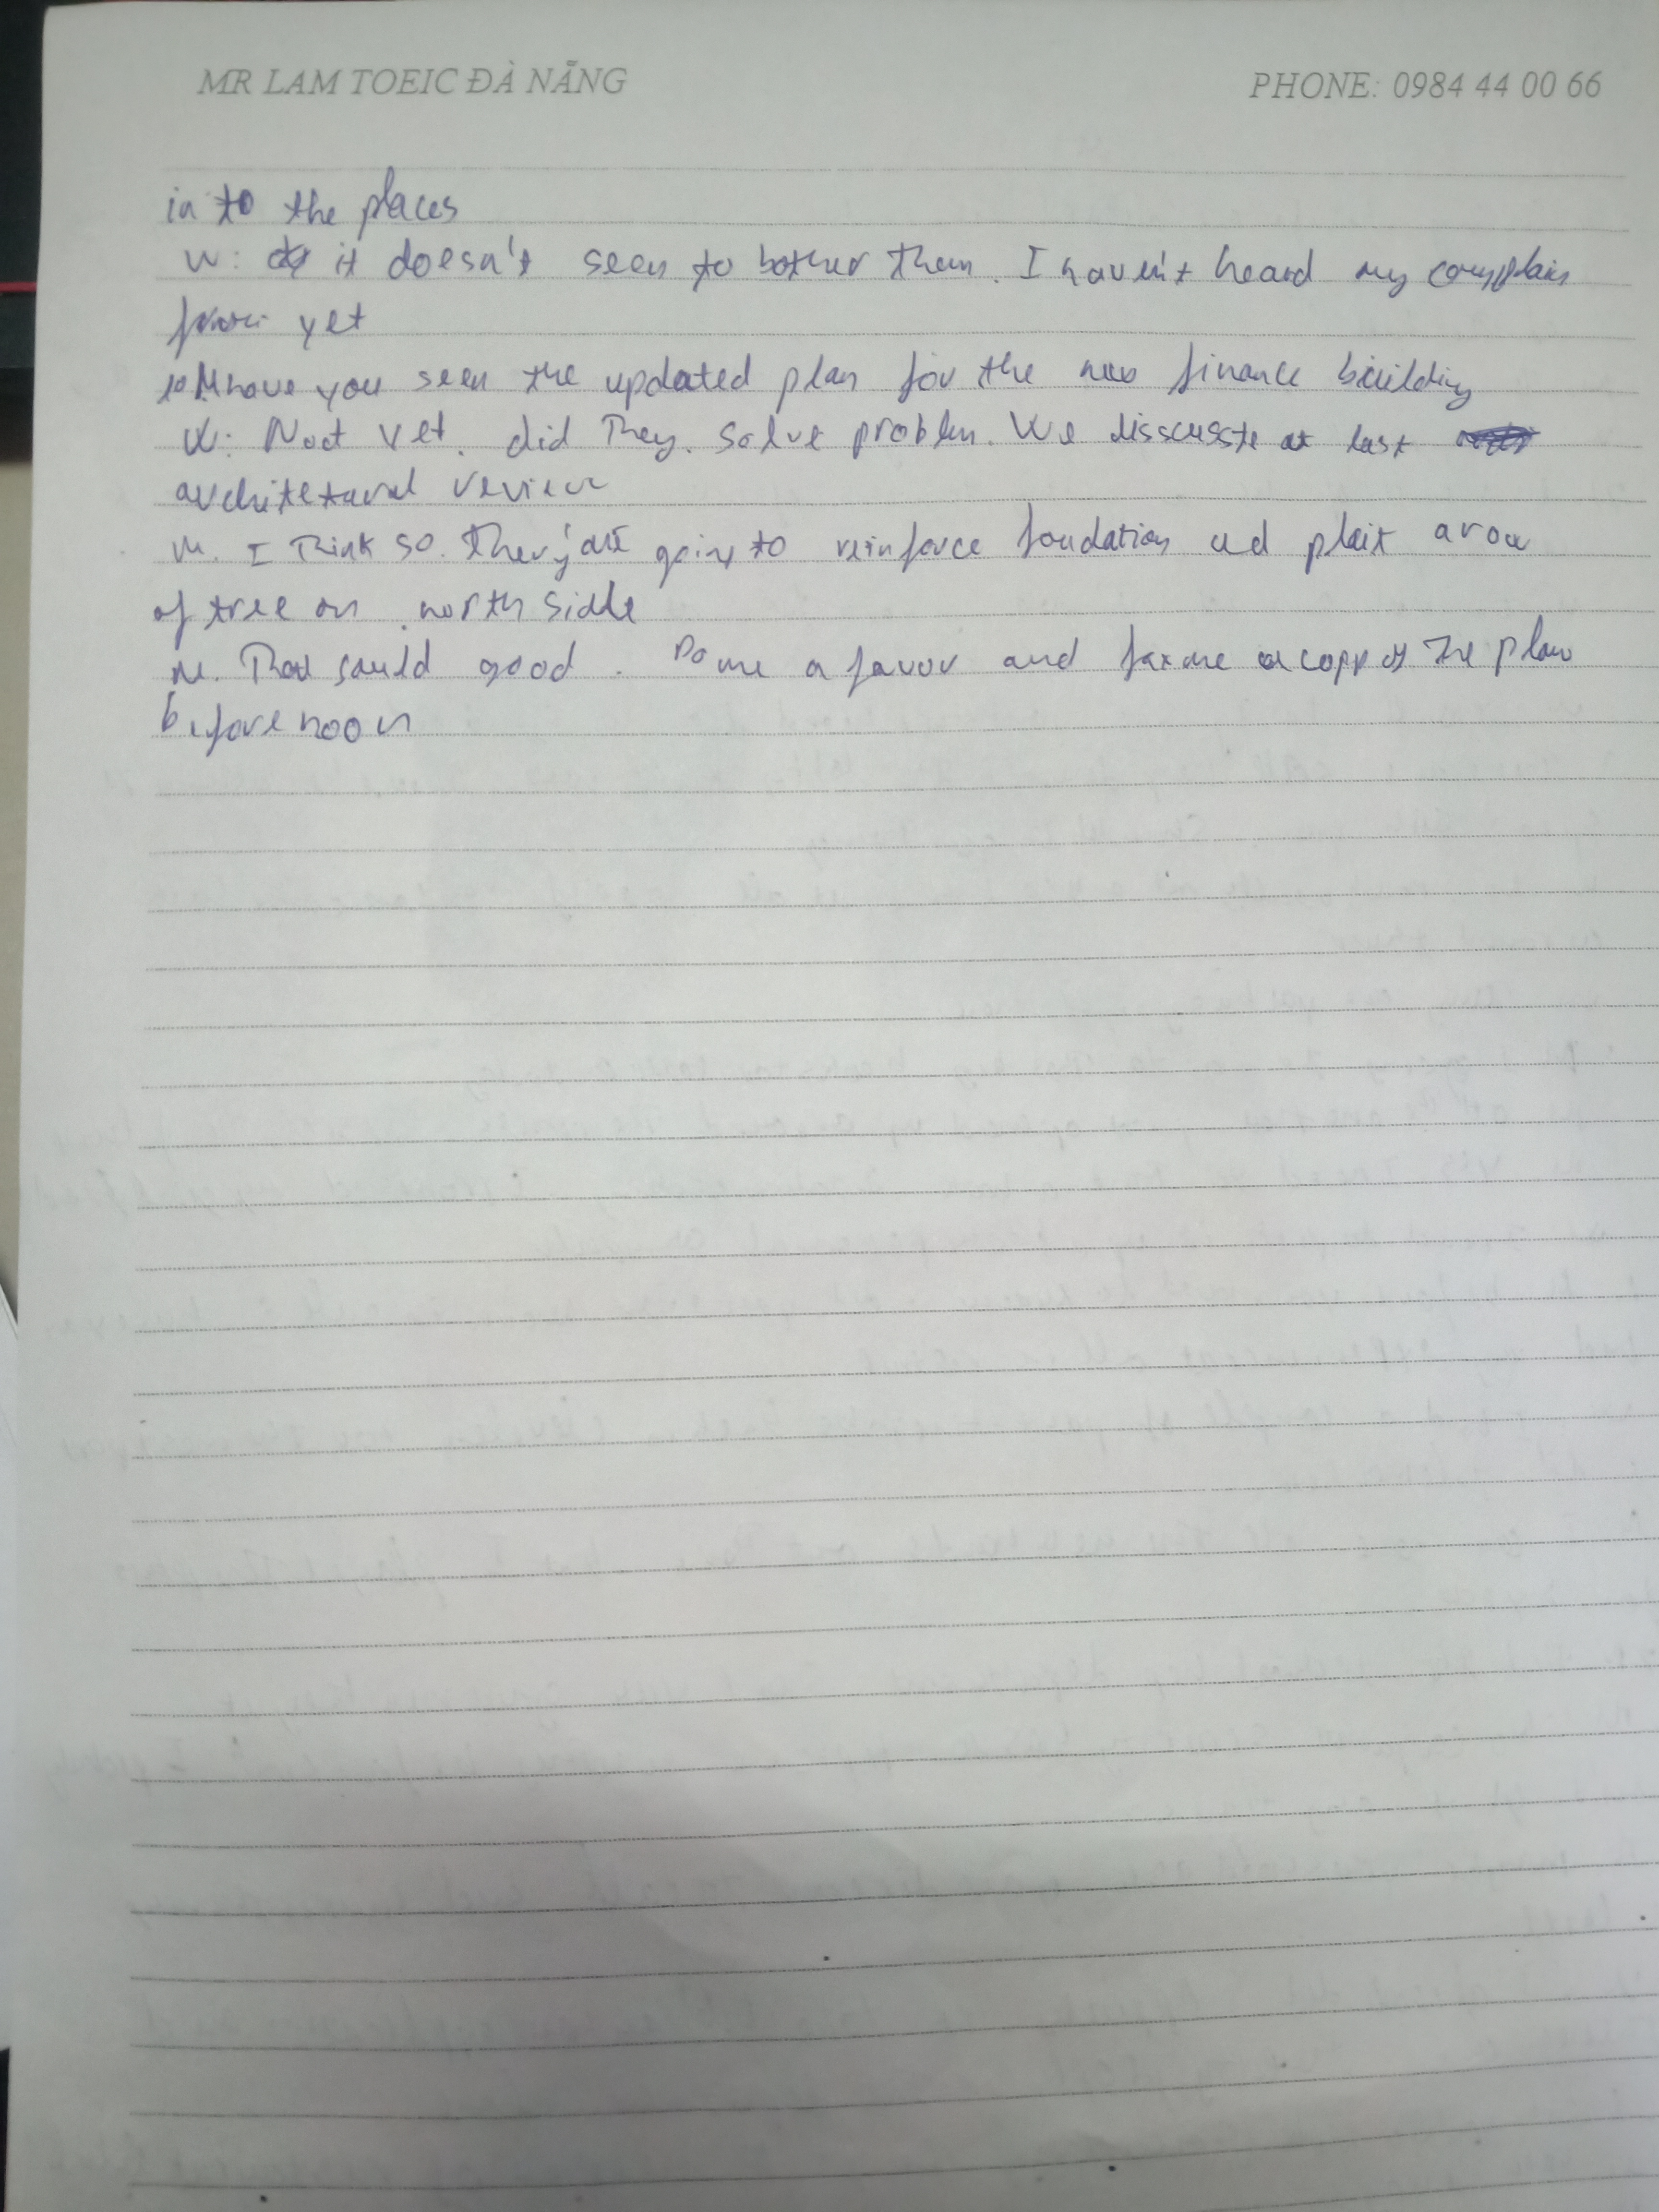 MR LAM TOEIC ĐÀ NẴNG PHONE: 0984 44 00 66
in to the places
W: it doesn't seem to bother them. I haven't heard my complain
yet
10 M have you seen the updated plan for the new finance building
W: Noot yet. did They. solve problem. We disscusste at last
architetural review
M. I Think so. They are going to reinforce foudation ad plait aroa
of tree on north sidde
M. That sould good. Do me a favor and fax me a copp of The plan
before noon